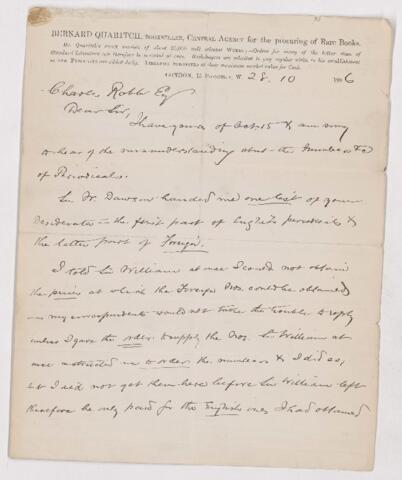 BERNARD QUARITCH, BOOKSELLER, CENTRAL AGENCY for the procuring of Rare Books.
Mr. Quaritch's stock consists of about 25,000 well selected WORKS;—Orders for many of the better class of
Standard Literature can therefore be executed at once. Bookbuyers are solicited to pay regular visits to his establishment
as NEW PURCHASES are added daily. LIBRARIES PURCHASED at their maximum market value for Cash.
LONDON, 15 PICCADILLY, W. 28. 10 1886
Charles Robb Esq
Dear Sir,
I have yours of Oct 15 & am sorry
to hear of the misunderstanding about the numbers &c
of Periodicals.
Sir W. Dawson handed me one list of your
Desiderata — the first part of English periodicals &
the latter part of Foreign.
I told Sir William at once I could not obtain
the prices at which the Foreign Nos. could be obtained
as my correspondents would not take the trouble to reply
unless I gave the order to supply the Nos. Sir William at
once instructed me to order the numbers & I did so,
but I did not get them here before Sir William left
therefore he only paid for the English ones I had obtained